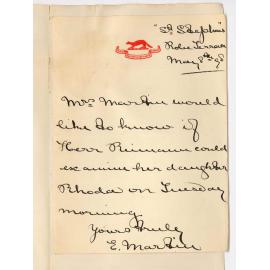 "St. Stephens"
Robe Terrace
May 8th 98
Mrs Martin would
like to know if
Herr Reimann could
examine her daughter
Rhoda on Tuesday
morning
Yours truly
E. Martin